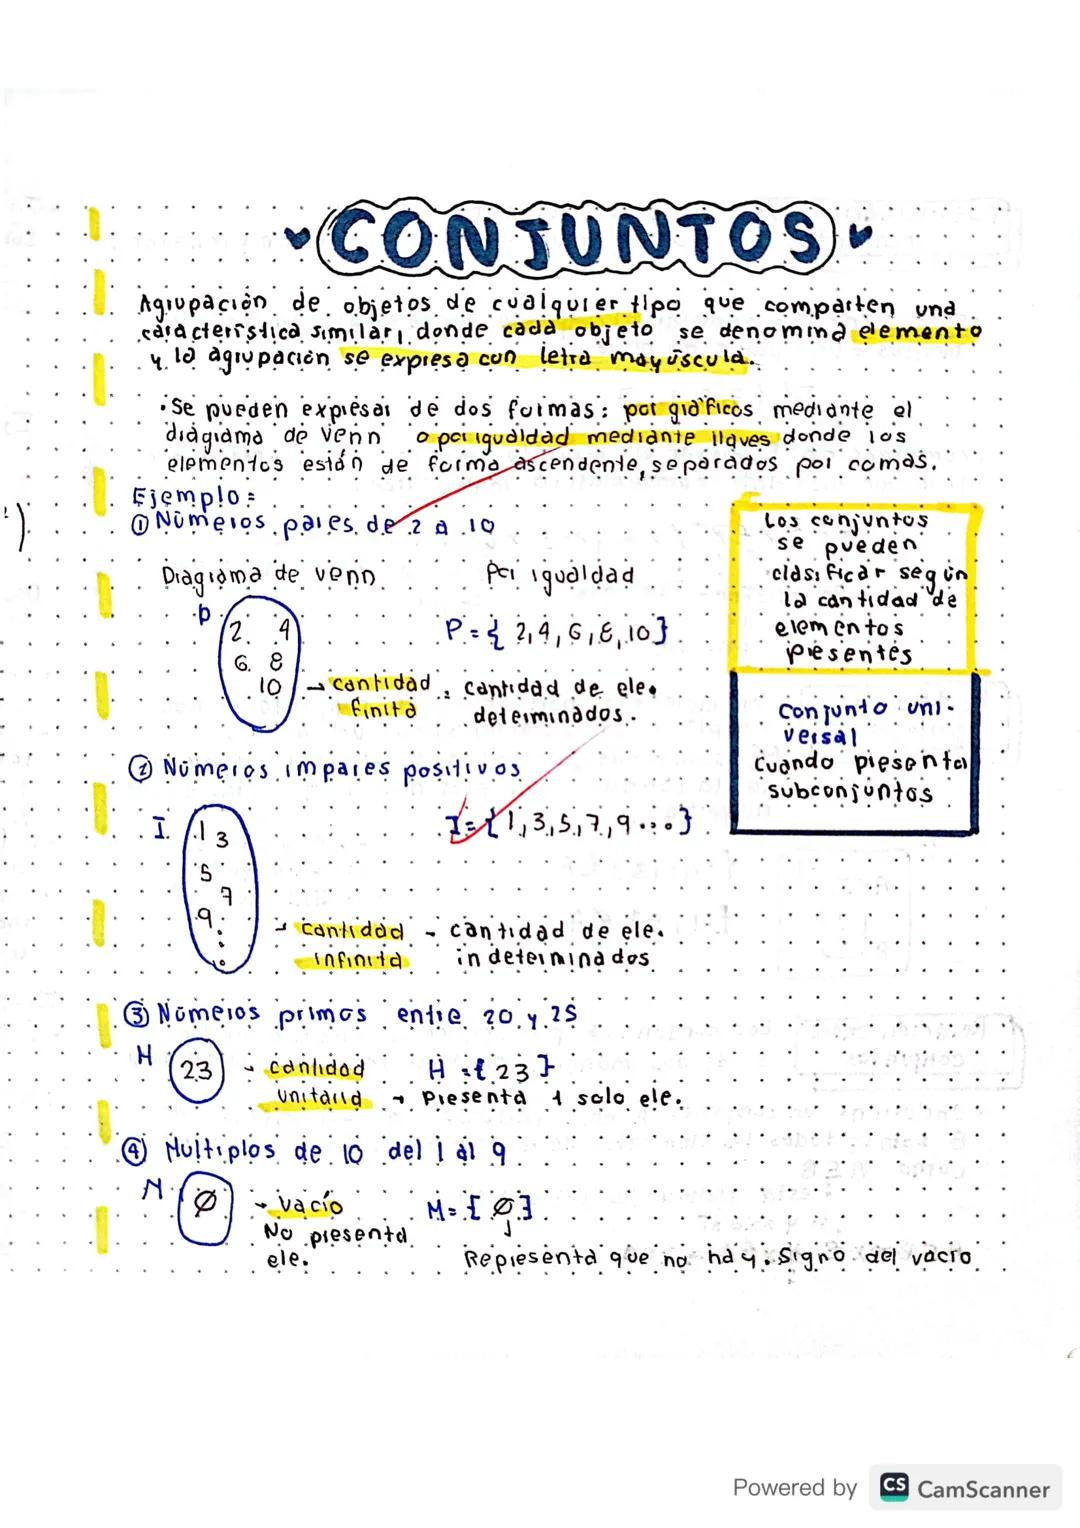 CONJUNTOS
Agrupación de objetos de cualquier tipo que comparten una
característica similar, donde cada objeto se denomina elemento
y la agrupación se expresa con letra mayúscula.
· Se pueden expresar de dos formas: por gráficos mediante el
diagrama de venn o por igualdad mediante llaves donde los
elementos están de forma ascendente, separados por comas.
Ejemplo:
① Números pares de 2 a 10
Diagrama de venn
Por igualdad
P
2 4
6 8
10
P = { 2, 4, 6, 8, 10 }
→ cantidad : cantidad de ele.
finita determinados.
Los conjuntos
se pueden
clasificar según
la cantidad de
elementos
presentes
Conjunto uni-
versal
Cuando presenta
subconjuntos
② Números impares positivos
I
1 3
5
7
9
⋮
I = { 1, 3, 5, 7, 9 ... }
→ cantidad - cantidad de ele.
infinita indeterminados
③ Números primos entre 20 y 25
H
23
- cantidad
unitaria → Presenta 1 solo ele.
H = { 23 }
④ Multiplos de 10 del 1 al 9
M
Ø
→ vacío
No presenta
ele.
M = { Ø }
Representa que no hay. Signo del vacío
Powered by CS CamScanner